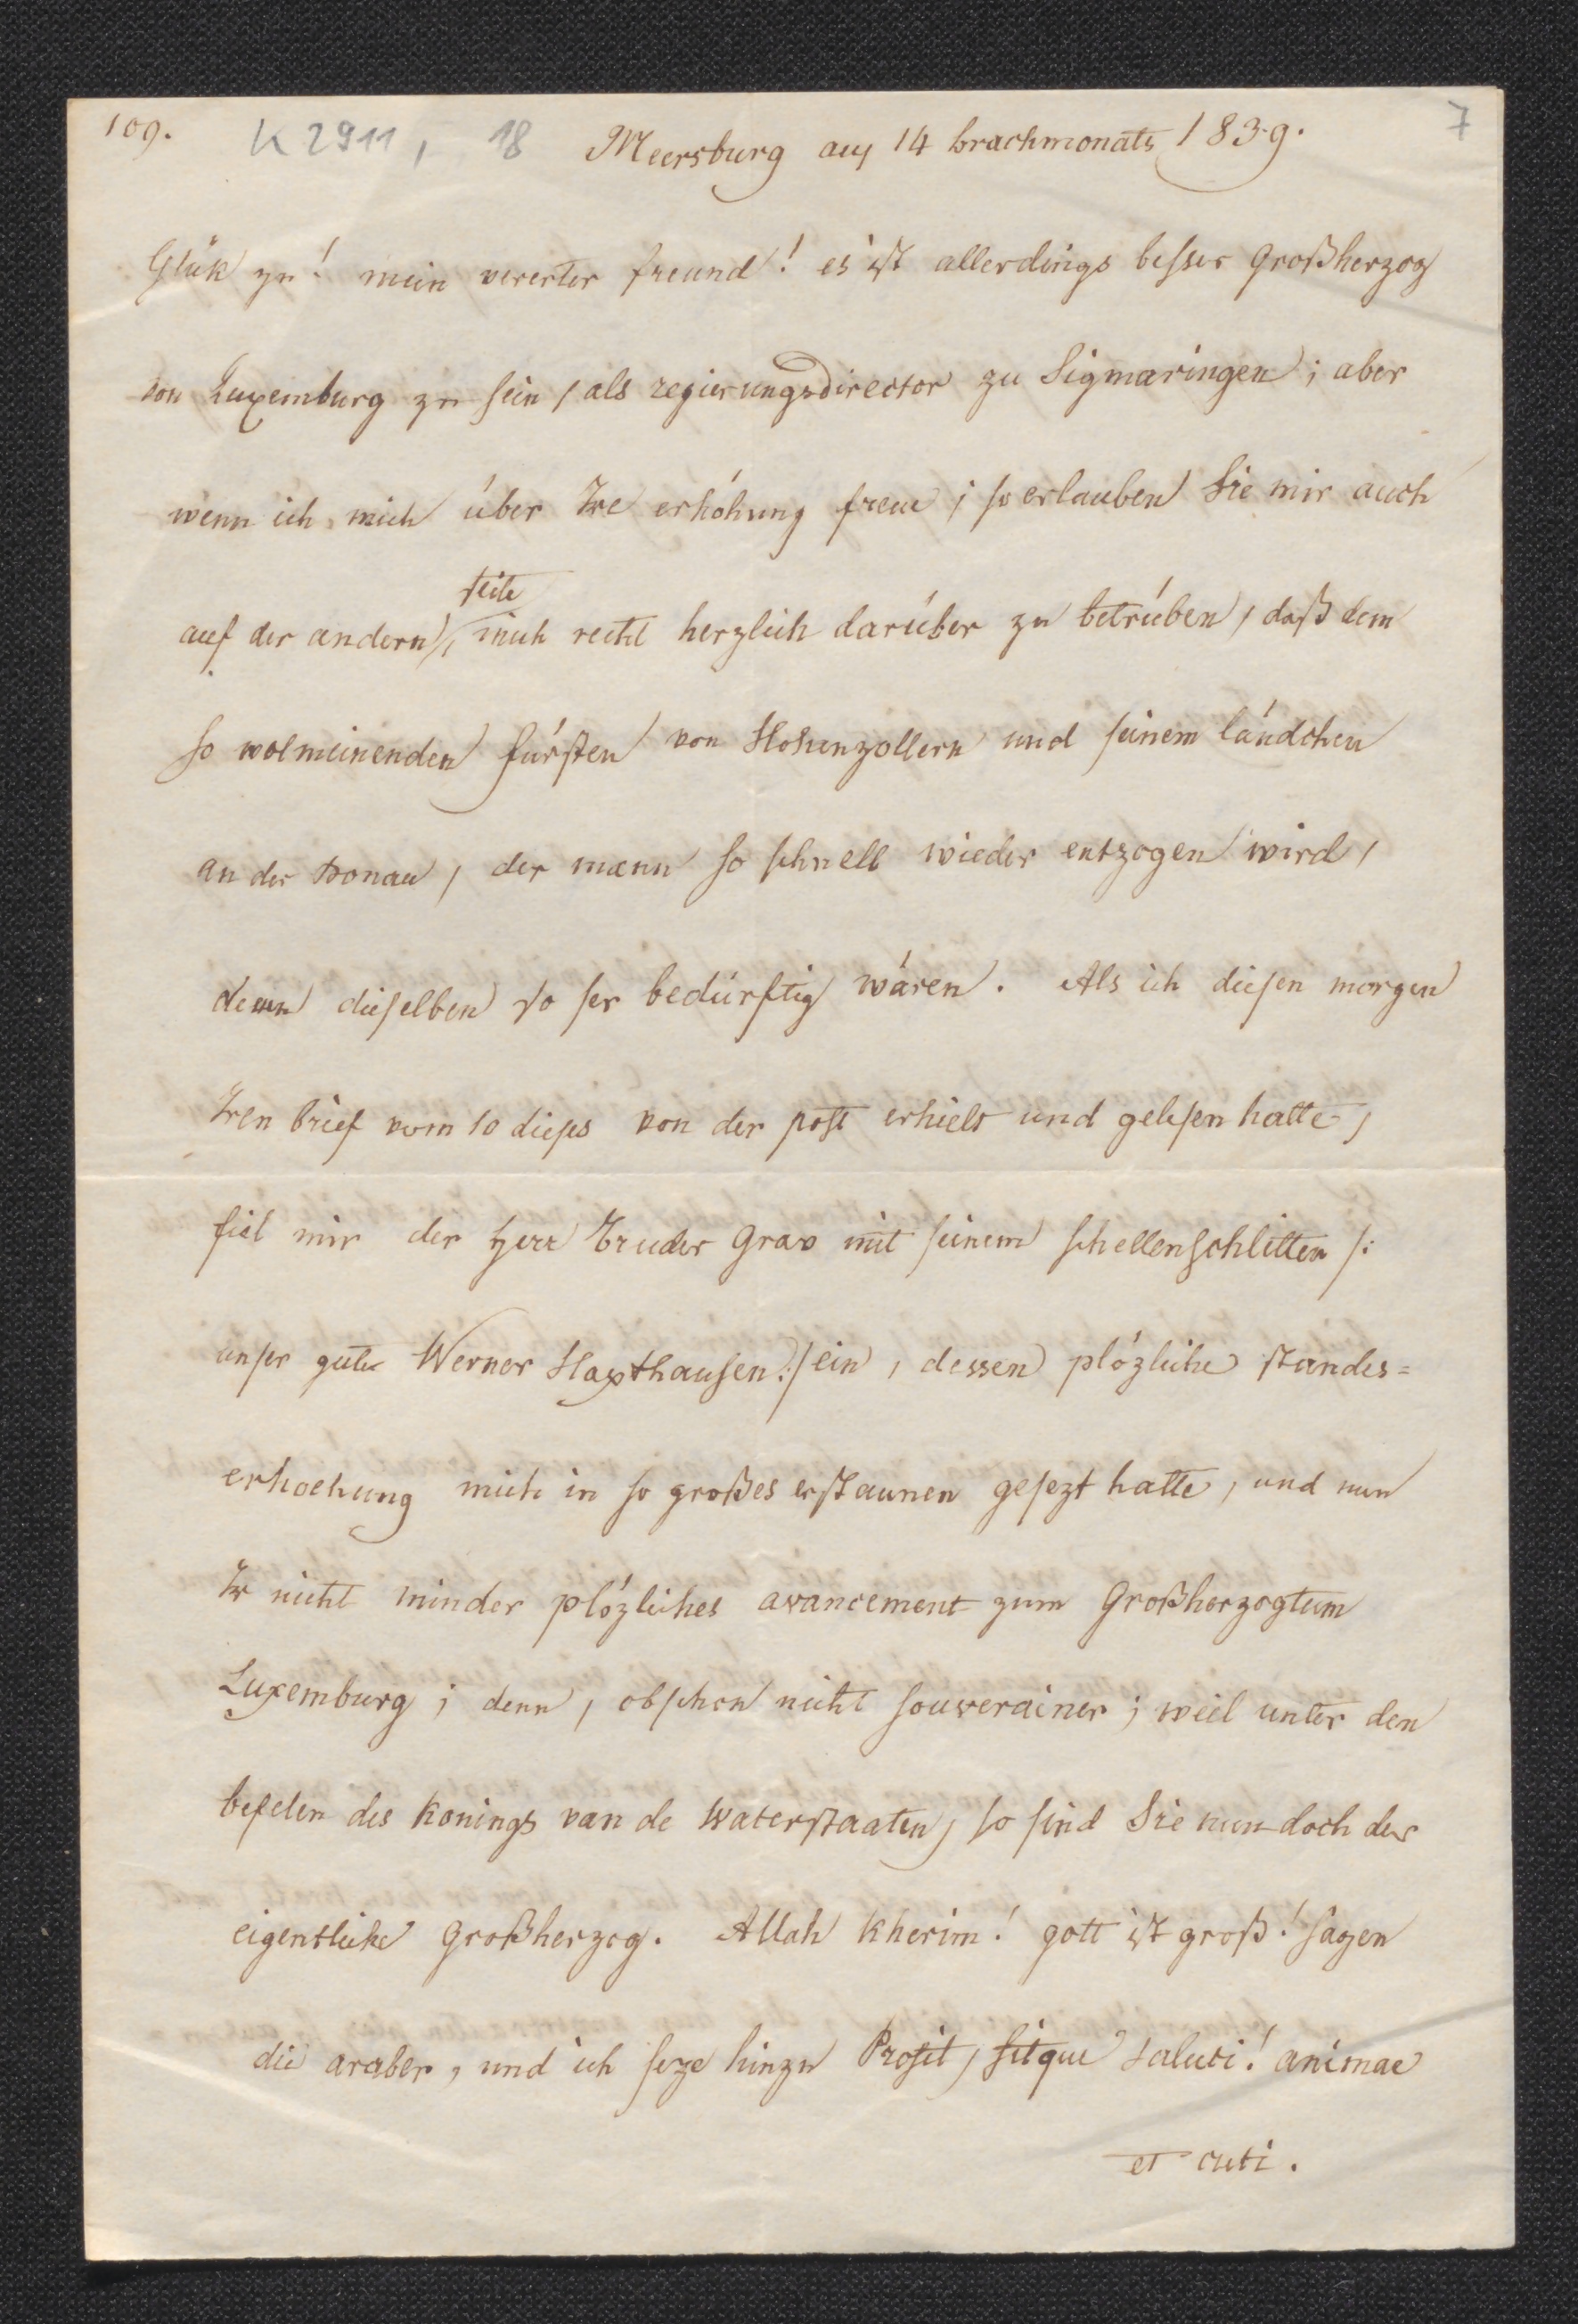 109. K 2911, 18 Meersburg auf 14 brachmonats 1839. 7
Glük zu! mein vererter freund! es ist allerdings besser Großherzog
von Luxemburg zu sein, als regierungsdirector zu Sigmaringen; aber
wenn ich mich über Ire erhöhung freue; so erlauben Sie mir auch
seite
auf der andern, mich recht herzlich darüber zu betrüben, daß dem
so wolmeinenden fürsten von Hohenzollern und seinem ländchen
an der Donau, der mann so schnell wieder entzogen wird,
dessen dieselben so ser bedürftig wären. Als ich diesen morgen
Iren brief vom 10 dieses von der post erhielt und gelesen hatte,
fiel mir der Herr Bruder Grav mit seinem schellenschlitten /:
unser guter Werner Haxthausen:/ ein, dessen plözliche standes=
erhoehung mich in so großes erstaunen gesezt hatte, und nun
Ir nicht minder plözliches avancement zum Großherzogtum
Luxemburg; denn, obschon nicht souverainer; weil unter den
befelen des Konings van de Waterstaaten, so sind Sie nun doch der
eigentliche Großherzog. Allah Kherim! gott ist groß! sagen
die araber, und ich seze hinzu Prosit, sitque saluti! animae
et cuti.